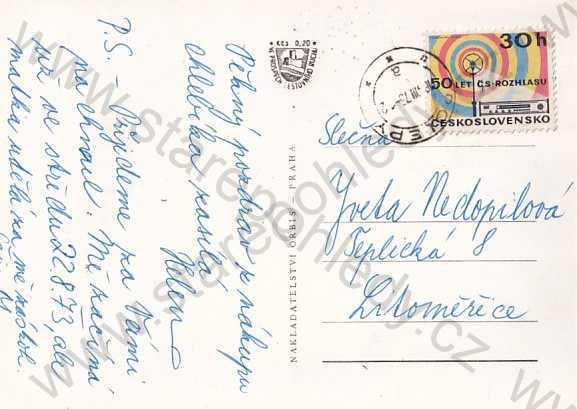 Pěkný pozdrav z nákupu
chlebíka zasílá
Helena
P.S. – Přijdeme za Vámi
na chvíli. Mi začíná
už ve středu 22.8.73, ale
mamka udělá za mě
Kčs 0,20
NAKLADATELSTVÍ ORBIS PRAHA
30h
50 LET ČS. ROZHLASU
ČESKOSLOVENSKO
Slečna
Iveta Nedopilová
Teplická 8
Litoměřice
www.starepohledy.cz